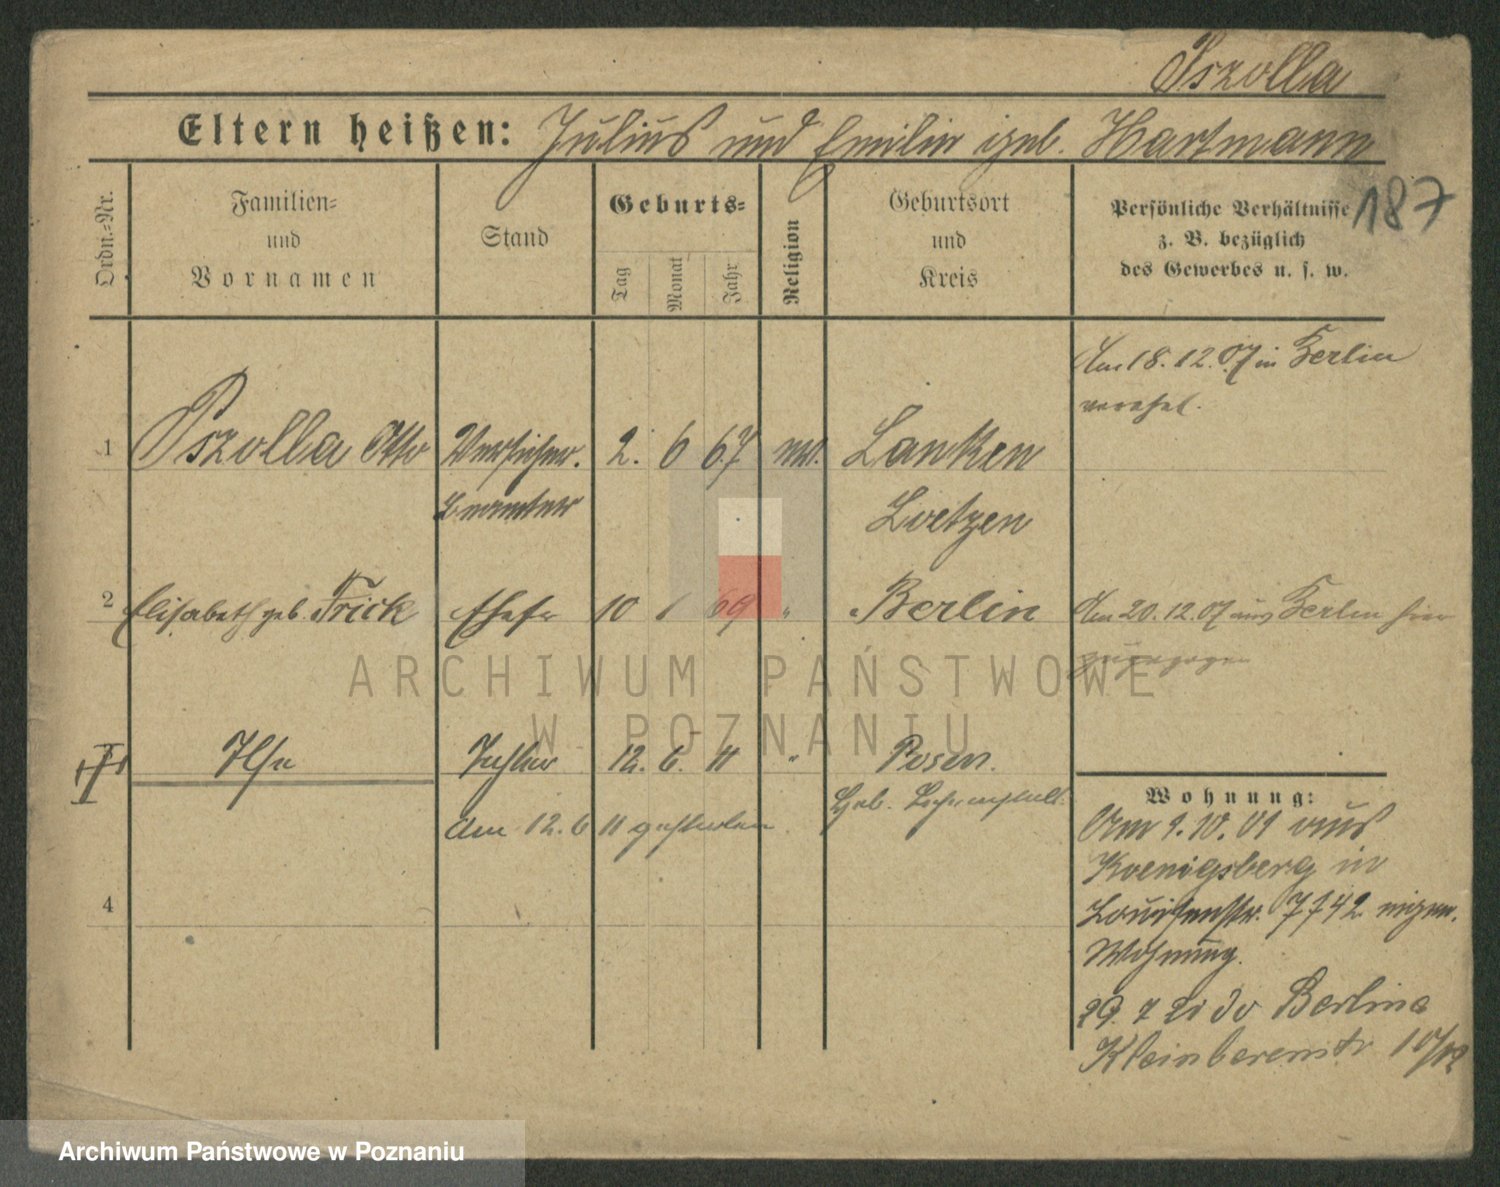 Pszolla
Eltern heißen: Julius und Emilie geb. Hartmann
187
Ordn.-Nr.
Familien-
und
Vornamen
Stand
Geburts-
Tag
Monat
Jahr
Religion
Geburtsort
und
Kreis
Persönliche Verhältnisse
z. B. bezüglich
des Gewerbes u. s. w.
Am 18.12.07 in Berlin
verehel.
1 Pszolla Otto Versicher. 2. 6 67 ev. Lanken
Beamter Loetzen
2 Elisabeth geb. Frick Ehefr 10 69 " Berlin
Am 20.12.07 aus Berlin hier
zugezogen
ARCHIWUM PAŃSTWOWE
W POZNANIU
Ilse Tochter 12. 6. 11 " Posen.
Am 12.6 11 gestorben
Wohnung:
Am 9.10.01 aus
Koenigsberg in
Louisenstr. 7742 eigen.
Wohnung.
4
29. 7 Berlin
Kleinbeerenstr 10/12
Archiwum Państwowe w Poznaniu